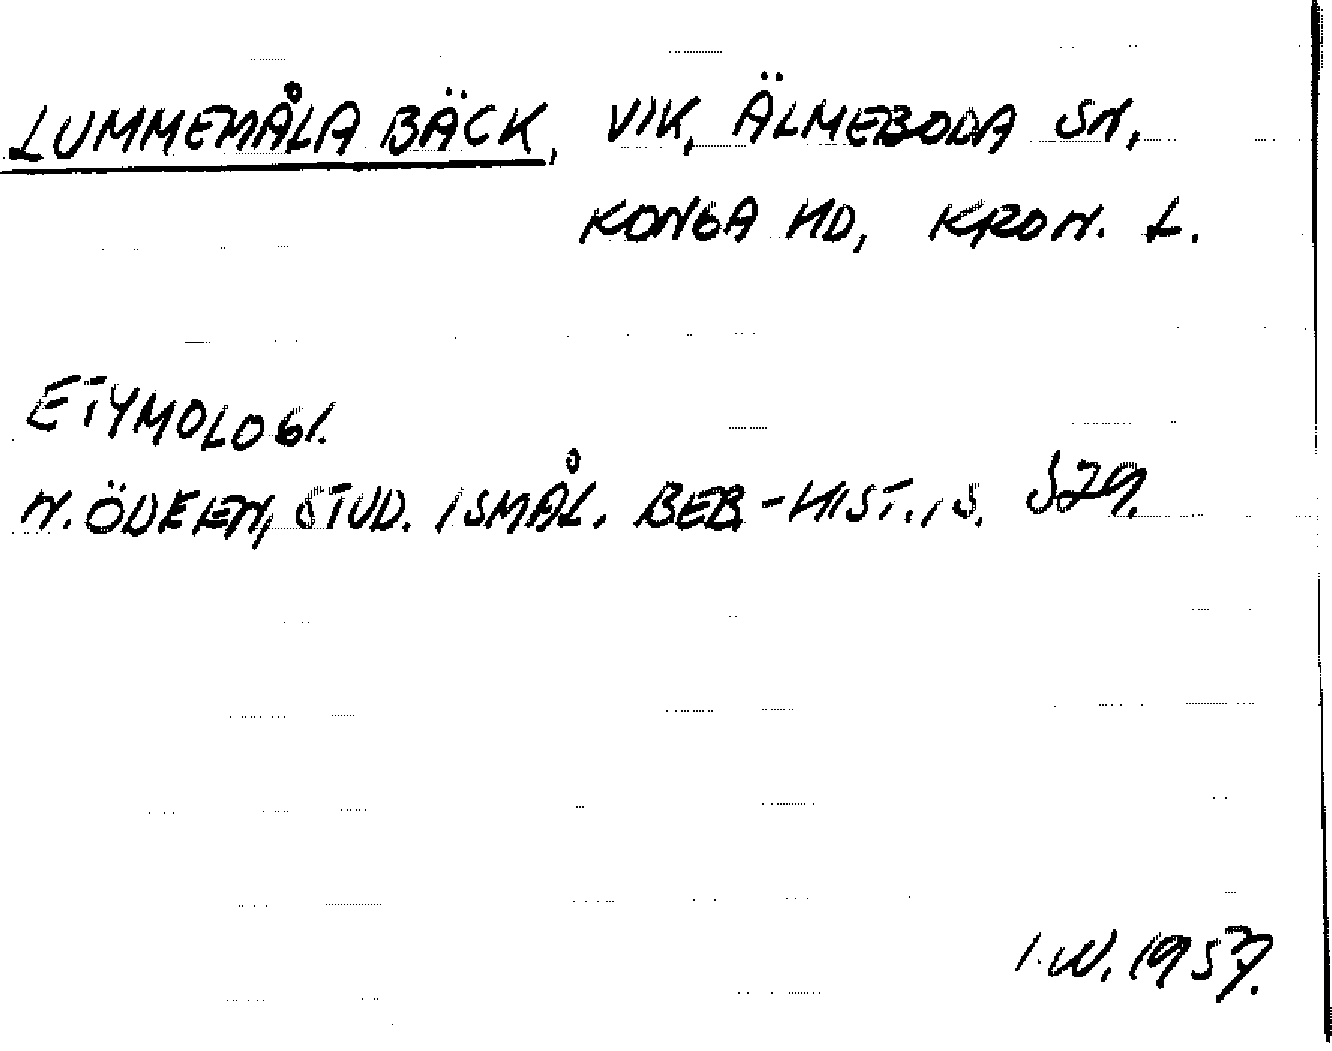 LUMMEMÅLA BÄCK, VIK, ÄLMEBODA SN,
KONGA HD, KRON. L.
ETYMOLOGI.
N. ÖDEEN, STUD. I SMÅL. BEB-HIST., S. 529.
I.W. 1957.